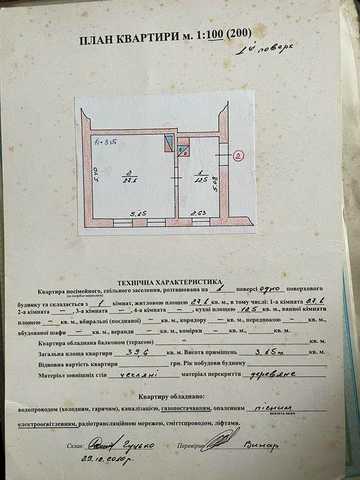 ПЛАН КВАРТИРИ м. 1:100 (200)
1й поверх
h = 3.65
2
27.6
1
12.5
2
5.08
2.63
ТЕХНІЧНА ХАРАКТЕРИСТИКА
Квартира посімейного, спільного заселення, розташована на 1 поверсі одно поверхового
будинку та складається з 1 кімнат, житловою площею 27.6 кв. м., в тому числі: 1-а кімната 27.6
2-а кімната — , 3-а кімната — , 4-а кімната — , кухні площею 12.5 кв. м., ванної кімнати
площею — кв. м., вбиральні (поєднаної) — кв. м., коридору — кв. м., передпокою — кв. м.,
вбудованої шафи — кв. м., веранди — кв. м., комірки — кв. м., кв. м.
Квартира обладнана балконом (терасою) — кв. м.
Загальна площа квартири 39,6 кв. м. Висота приміщень 3.65 м.
Відновна вартість квартири грн. Рік побудови будинку
Матеріал зовнішніх стін цегляні матеріал перекриття деревяне
Квартиру обладнано:
водопроводом (холодним, гарячим), каналізацією, газопостачанням, опаленням пічним
електроосвітленням, радіотрансляційною мережою, сміттєпроводом, ліфтами.
Склав: Гуцько Перевірив:
29.12.2010р.